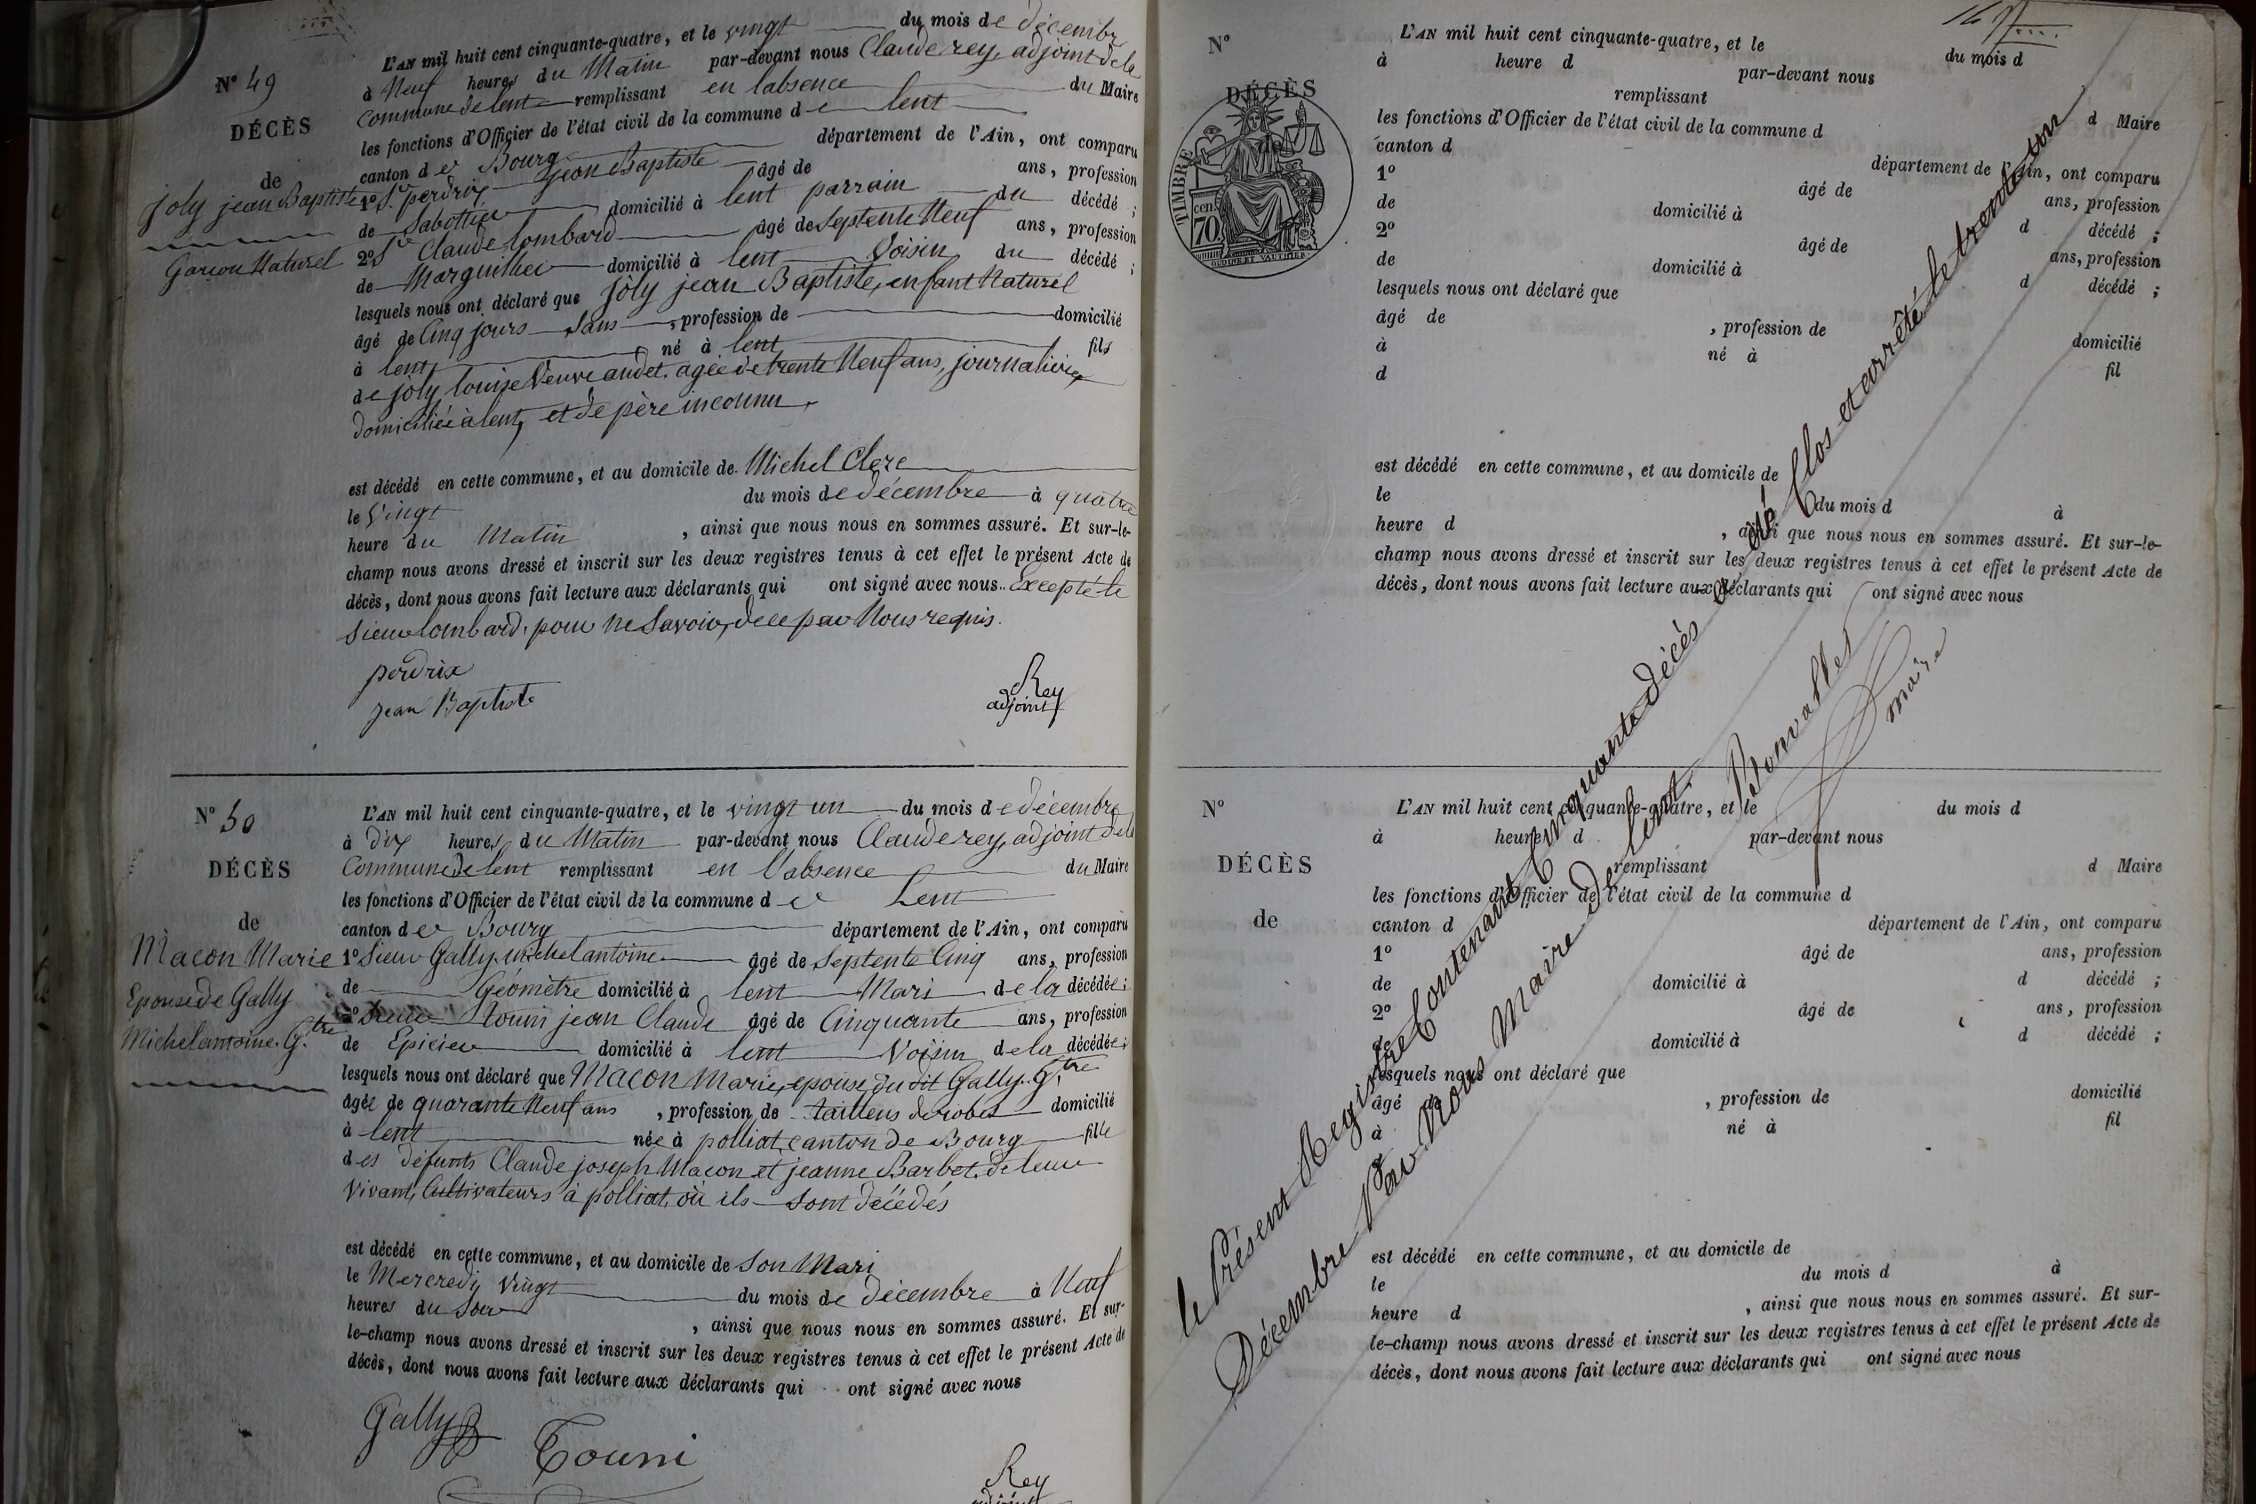 N° 49
DÉCÈS
de
joly jean Baptiste
Garçon Naturel
L'AN mil huit cent cinquante-quatre, et le vingt du mois de décembre
à Neuf heures du Matin par-devant nous Claude rey, adjoint de la
Commune de lent remplissant en l'absence du Maire
les fonctions d'Officier de l'état civil de la commune de lent
canton de Bourg département de l'Ain, ont comparu
1° Sr perdrix jean Baptiste âgé de ans, profession
de Sabottier domicilié à lent parrain du décédé ;
2° Sr Claude lombard âgé de Septente Neuf ans, profession
de Marguillier domicilié à lent Voisin du décédé ;
lesquels nous ont déclaré que joly jean Baptiste, enfant Naturel
âgé de Cinq jours sans , profession de domicilié
à lent né à lent fils
de joly louise Veuve andet. agée de trente Neuf ans, journalière
domiciliée à lent, et de père inconnu,
est décédé en cette commune, et au domicile de Michel Clerc
le Vingt du mois de décembre à quatre
heure du Matin , ainsi que nous nous en sommes assuré. Et sur-le-
champ nous avons dressé et inscrit sur les deux registres tenus à cet effet le présent Acte de
décès, dont nous avons fait lecture aux déclarants qui ont signé avec nous.. Excepté le
sieur lombard. pour ne Savoir, de ce par Nous requis.
perdrix
jean Baptiste
Rey
adjoint
N° 50
DÉCÈS
de
Macon Marie
Epouse de Gally
Michel antoine. G.tre
L'AN mil huit cent cinquante-quatre, et le vingt un du mois de décembre
à dix heures du Matin par-devant nous Claude rey, adjoint de la
Commune de lent remplissant en l'absence du Maire
les fonctions d'Officier de l'état civil de la commune de Lent
canton de Bourg département de l'Ain, ont comparu
1° Sieur Gally michel antoine âgé de Septente Cinq ans, profession
de Géomètre domicilié à lent Mari de la décédée ;
2° Touni jean Claude âgé de Cinquante ans, profession
de Epicier domicilié à lent Voisin de la décédée ;
lesquels nous ont déclaré que Macon Marie, epouse du dit Gally. G.tre
âgée de quarante Neuf ans , profession de tailleus de robes domicilié
à lent née à polliat, canton de Bourg fille
des défunts Claude joseph Macon et jeanne Barbet. de leur
Vivant, Cultivateurs à polliat, où ils sont décédés
est décédé en cette commune, et au domicile de son Mari
le Mercredi Vingt du mois de décembre à Neuf
heures du Soir , ainsi que nous nous en sommes assuré. Et sur-
le-champ nous avons dressé et inscrit sur les deux registres tenus à cet effet le présent Acte de
décès, dont nous avons fait lecture aux déclarants qui ont signé avec nous
Gally
Touni
Rey
adjoint
N°
DÉCÈS
de
TIMBRE
cen.
70.
L'AN mil huit cent cinquante-quatre, et le du mois d
à heure d par-devant nous
remplissant d Maire
les fonctions d'Officier de l'état civil de la commune d
canton d département de l'Ain, ont comparu
1° âgé de ans, profession
de domicilié à d décédé ;
2° âgé de ans, profession
de domicilié à d décédé ;
lesquels nous ont déclaré que
âgé de , profession de domicilié
à né à fil
d
est décédé en cette commune, et au domicile de
le du mois d à
heure d , ainsi que nous nous en sommes assuré. Et sur-le-
champ nous avons dressé et inscrit sur les deux registres tenus à cet effet le présent Acte de
décès, dont nous avons fait lecture aux déclarants qui ont signé avec nous
le Présent Registre Contenant Cinquante décès a été Clos et arrêté le trente un
Décembre Par Nous Maire de lent.
Bonvallet
maire
N°
DÉCÈS
de
L'AN mil huit cent cinquante-quatre, et le du mois d
à heure d par-devant nous
remplissant d Maire
les fonctions d'Officier de l'état civil de la commune d
canton d département de l'Ain, ont comparu
1° âgé de ans, profession
de domicilié à d décédé ;
2° âgé de ans, profession
de domicilié à d décédé ;
lesquels nous ont déclaré que
âgé de , profession de domicilié
à né à fil
d
est décédé en cette commune, et au domicile de
le du mois d à
heure d , ainsi que nous nous en sommes assuré. Et sur-
le-champ nous avons dressé et inscrit sur les deux registres tenus à cet effet le présent Acte de
décès, dont nous avons fait lecture aux déclarants qui ont signé avec nous